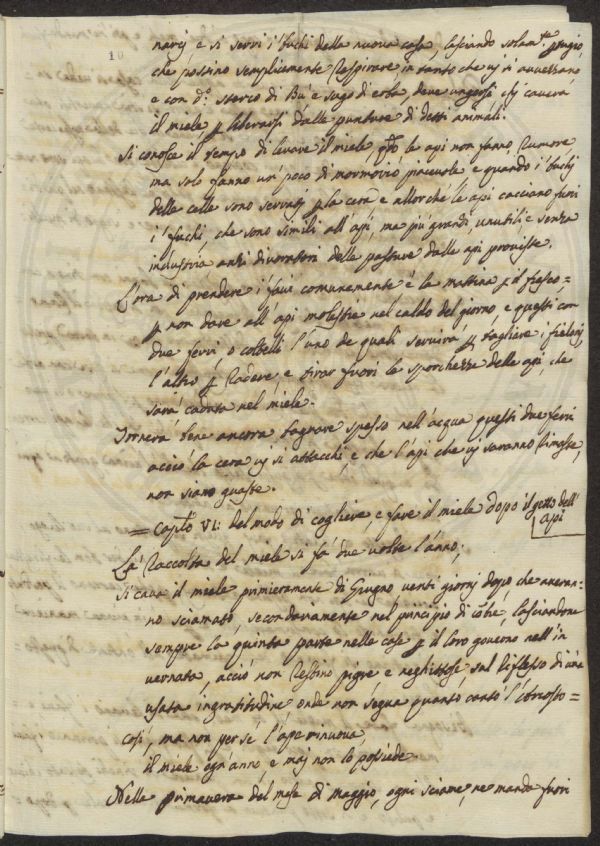 10
narej e si servi i buchi della nuova casa, lasciando solam.te pugio,
che possino semplicemente respirare in tanto che vi si avvezzano
e con d.o sterco di Bu' e sugo di erba, deve ungersi chi caverà
il miele p liberarsi dalle punture di detti animali.
Si conosce il tempo di levare il miele q.do le api non fanno rumore
ma solo fanno un' poco di mormorio piacevole e quando i buchj
delle celle sono serratj p la cera e allorchè le api cacciano fuori
i fuchi, che sono simili all'api, ma più grandi, inutili e senza
industria anzi divoratori delle pasture dalle api proviste.
L'ora di prendere i favi comunemente è la mattina p il fresco =
p non dare all'api molestie nel caldo del giorno, e questi con
due ferri, o coltelli l'uno de quali servirà p tagliare i fieloni
l'altro p radere, e tirar fuori le sporchezze delle api, che
sarà caduta nel miele.
Tornerà bene ancora bagnare spesso nell'acqua questi due ferri
acciò la cera vi si attacchi, e che l'api che vi saranno rimaste,
non siano guaste.
= Capto VI: del modo di cogliere, e fare il miele dopo il getto dell'
api
La Raccolta del miele si fà due volte l'anno;
Si cava il miele primieramente di Giugno venti giorni dopo che averan=
no sciamato, secondariamente nel principio di 8bre, lasciandone
sempre la quinta parte nelle case p il loro governo nell'in
vernata, acciò non restino pigre e neghittose, sul riflesso di una
usata ingratitudine onde non segua quanto cantò l'Ariosto =
Così, ma non per sè l'ape rinuova,
il miele ogn'anno e maj non lo possiede.
Nella primavera del mese di Maggio, ogni sciame, ne manda fuori